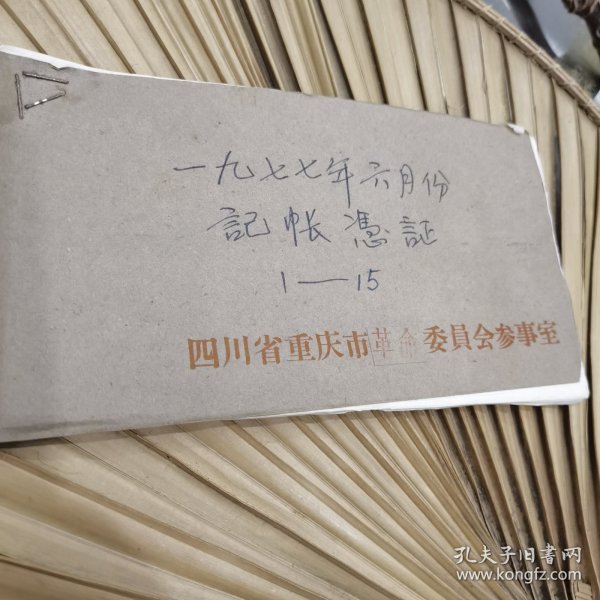 一九七七年六月份
記帐憑証
1—15
四川省重庆市革命委員会参事室
孔夫子旧書网
www.kongfz.com